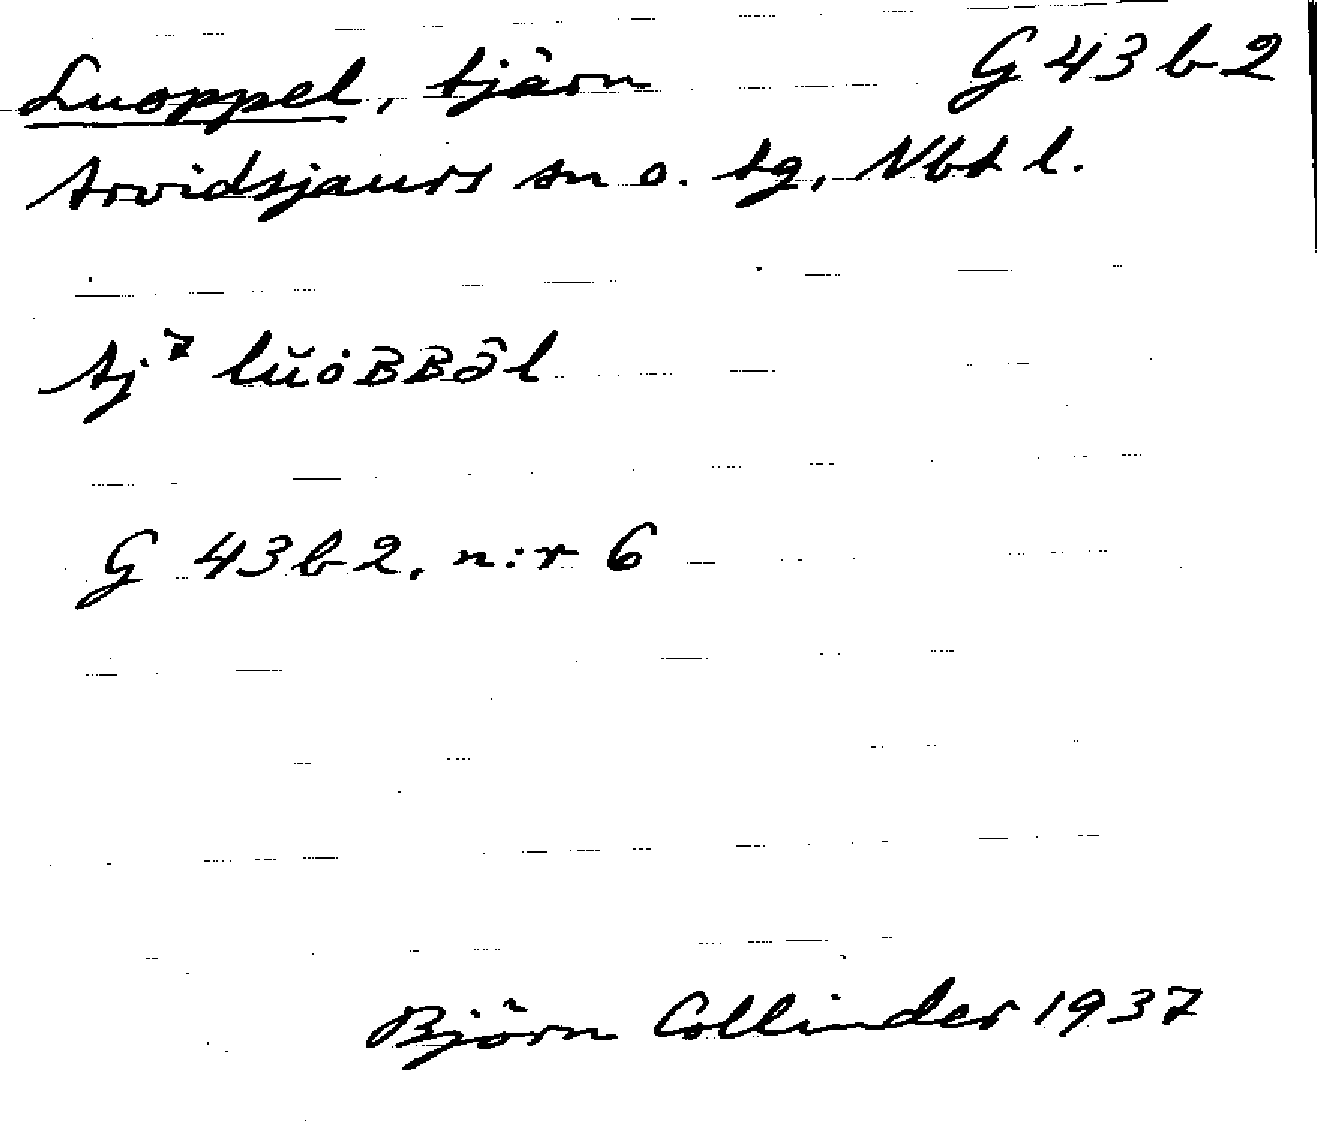 Luoppel, tjärn G 43 b 2
Arvidsjaurs sn o. tg, Nbt l.
Aj⁷ lŭȯʙʙə̑l
G 43 b 2, n:r 6
Björn Collinder 1937